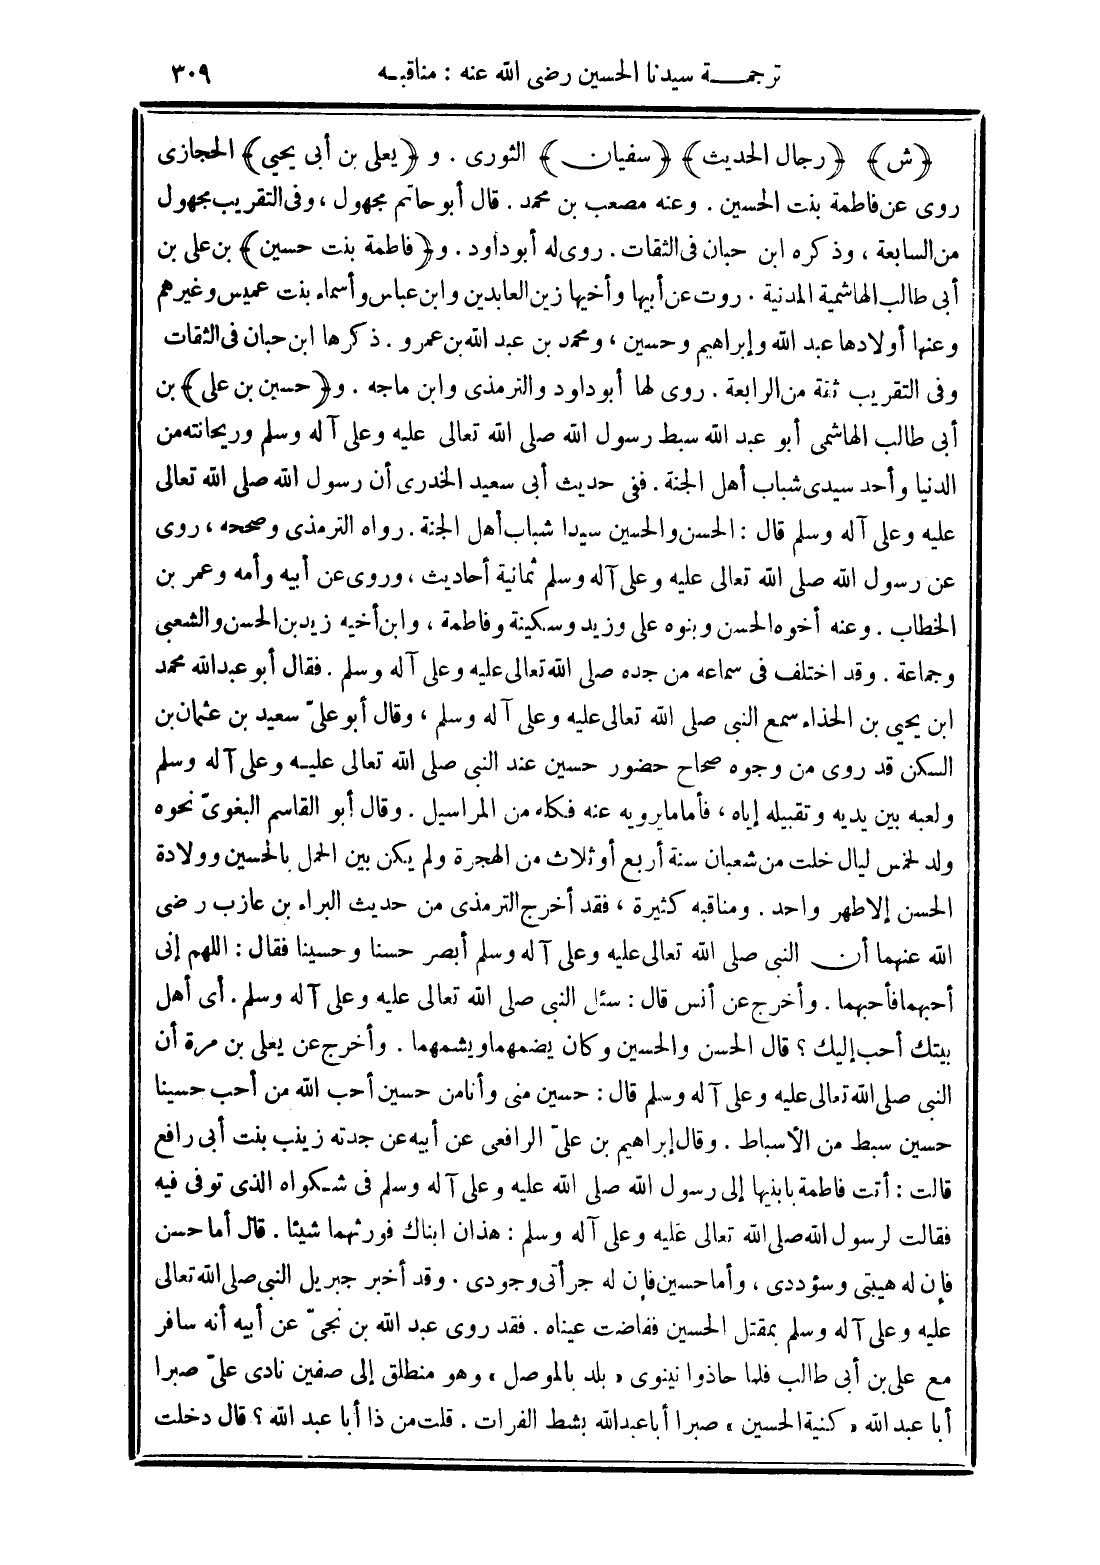 ترجمــة سيدنا الحسين رضى الله عنه : مناقبـه ٣٠٩
﴿ش﴾ ﴿رجال الحديث﴾ ﴿سفيان﴾ الثورى . و ﴿يعلى بن أبى يحيى﴾ الحجازى
روى عن فاطمة بنت الحسين . وعنه مصعب بن محمد . قال أبو حاتم مجهول ، وفى التقريب مجهول
من السابعة ، وذكره ابن حبان فى الثقات . روى له أبو داود . و﴿فاطمة بنت حسين﴾ بن على بن
أبى طالب الهاشمية المدنية . روت عن أبيها وأخيها زين العابدين وابن عباس وأسماء بنت عميس وغيرهم
وعنها أولادها عبد الله وإبراهيم وحسين ، ومحمد بن عبد الله بن عمرو . ذكرها ابن حبان فى الثقات
وفى التقريب ثقة من الرابعة . روى لها أبو داود والترمذى وابن ماجه . و﴿حسين بن على﴾ بن
أبى طالب الهاشمى أبو عبد الله سبط رسول الله صلى الله تعالى عليه وعلى آله وسلم وريحانته من
الدنيا وأحد سيدى شباب أهل الجنة . ففى حديث أبى سعيد الخدرى أن رسول الله صلى الله تعالى
عليه وعلى آله وسلم قال : الحسن والحسين سيدا شباب أهل الجنة . رواه الترمذى وصححه ، روى
عن رسول الله صلى الله تعالى عليه وعلى آله وسلم ثمانية أحاديث ، وروى عن أبيه وأمه وعمر بن
الخطاب . وعنه أخوه الحسن وبنوه على وزيد وسكينة وفاطمة ، وابن أخيه زيد بن الحسن والشعبى
وجماعة . وقد اختلف فى سماعه من جده صلى الله تعالى عليه وعلى آله وسلم . فقال أبو عبد الله محمد
ابن يحيى بن الحذاء سمع النبى صلى الله تعالى عليه وعلى آله وسلم ، وقال أبو علىّ سعيد بن عثمان بن
السكن قد روى من وجوه صحاح حضور حسين عند النبى صلى الله تعالى عليـه وعلى آله وسلم
ولعبه بين يديه وتقبيله إياه ، فأما ما يرويه عنه فكله من المراسيل . وقال أبو القاسم البغوىّ نحوه
ولد لخمس ليال خلت من شعبان سنة أربع أو ثلاث من الهجرة ولم يكن بين الحمل بالحسين وولادة
الحسن إلا طهر واحد . ومناقبه كثيرة ، فقد أخرج الترمذى من حديث البراء بن عازب رضى
الله عنهما أن النبى صلى الله تعالى عليه وعلى آله وسلم أبصر حسنا وحسينا فقال : اللهم إنى
أحبهما فأحبهما . وأخرج عن أنس قال : سئل النبى صلى الله تعالى عليه وعلى آله وسلم . أى أهل
بيتك أحب إليك ؟ قال الحسن والحسين وكان يضمهما ويشمهما . وأخرج عن يعلى بن مرة أن
النبى صلى الله تعالى عليه وعلى آله وسلم قال : حسين منى وأنا من حسين أحب الله من أحب حسينا
حسين سبط من الأسباط . وقال إبراهيم بن علىّ الرافعى عن أبيه عن جدته زينب بنت أبى رافع
قالت : أتت فاطمة بابنيها إلى رسول الله صلى الله عليه وعلى آله وسلم فى شـكواه الذى توفى فيه
فقالت لرسول الله صلى الله تعالى عليه وعلى آله وسلم : هذان ابناك فورثهما شيئا . قال أما حسن
فإن له هيبتى وسؤددى ، وأما حسين فإن له جرأتى وجودى . وقد أخبر جبريل النبى صلى الله تعالى
عليه وعلى آله وسلم بمقتل الحسين ففاضت عيناه . فقد روى عبد الله بن نجىّ عن أبيه أنه سافر
مع على بن أبى طالب فلما حاذوا نينوى « بلد بالموصل » وهو منطلق إلى صفين نادى علىّ صبرا
أبا عبد الله « كنية الحسين » صبرا أبا عبد الله بشط الفرات . قلت من ذا أبا عبد الله ؟ قال دخلت